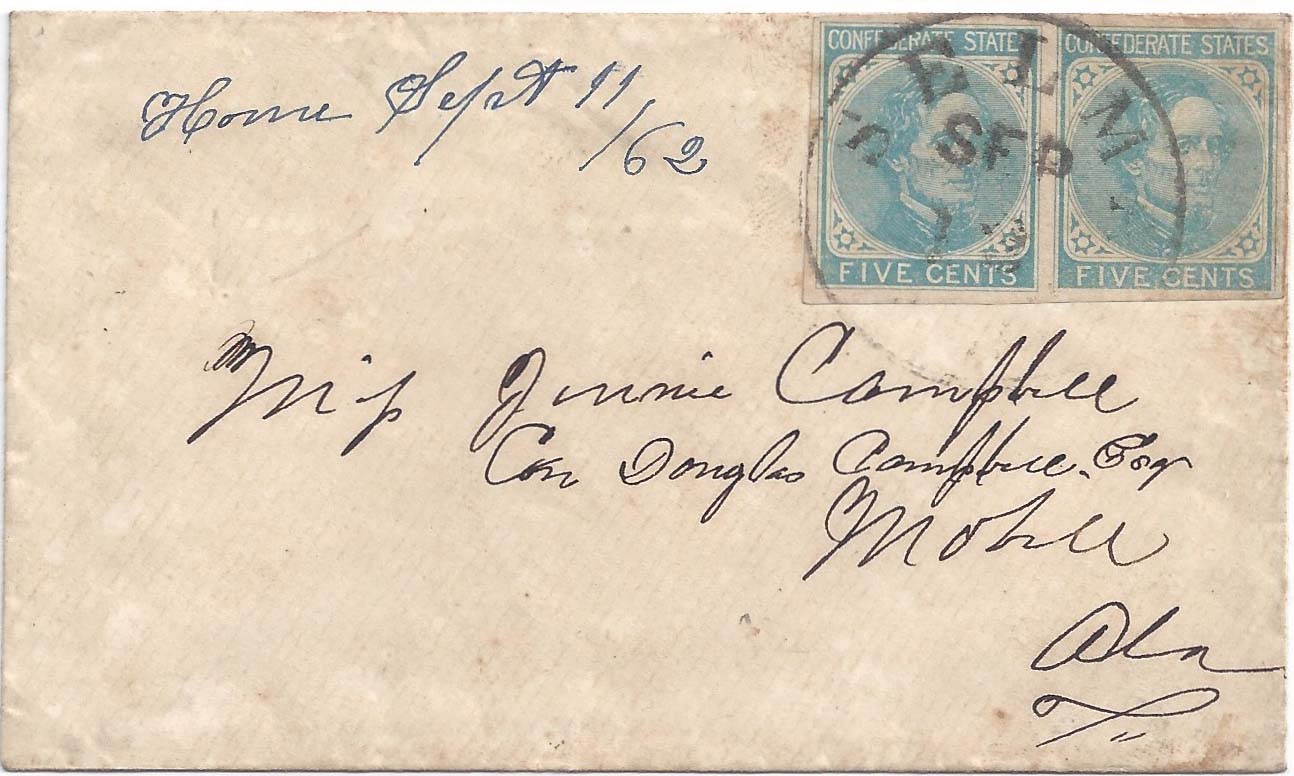 Home Sept 11
/62
CONFEDERATE STATES CONFEDERATE STATES
SELM
SEP
13
FIVE CENTS FIVE CENTS
Miss Jennie Campbell
Care Douglas Campbell, Esqr
Mobile
Ala